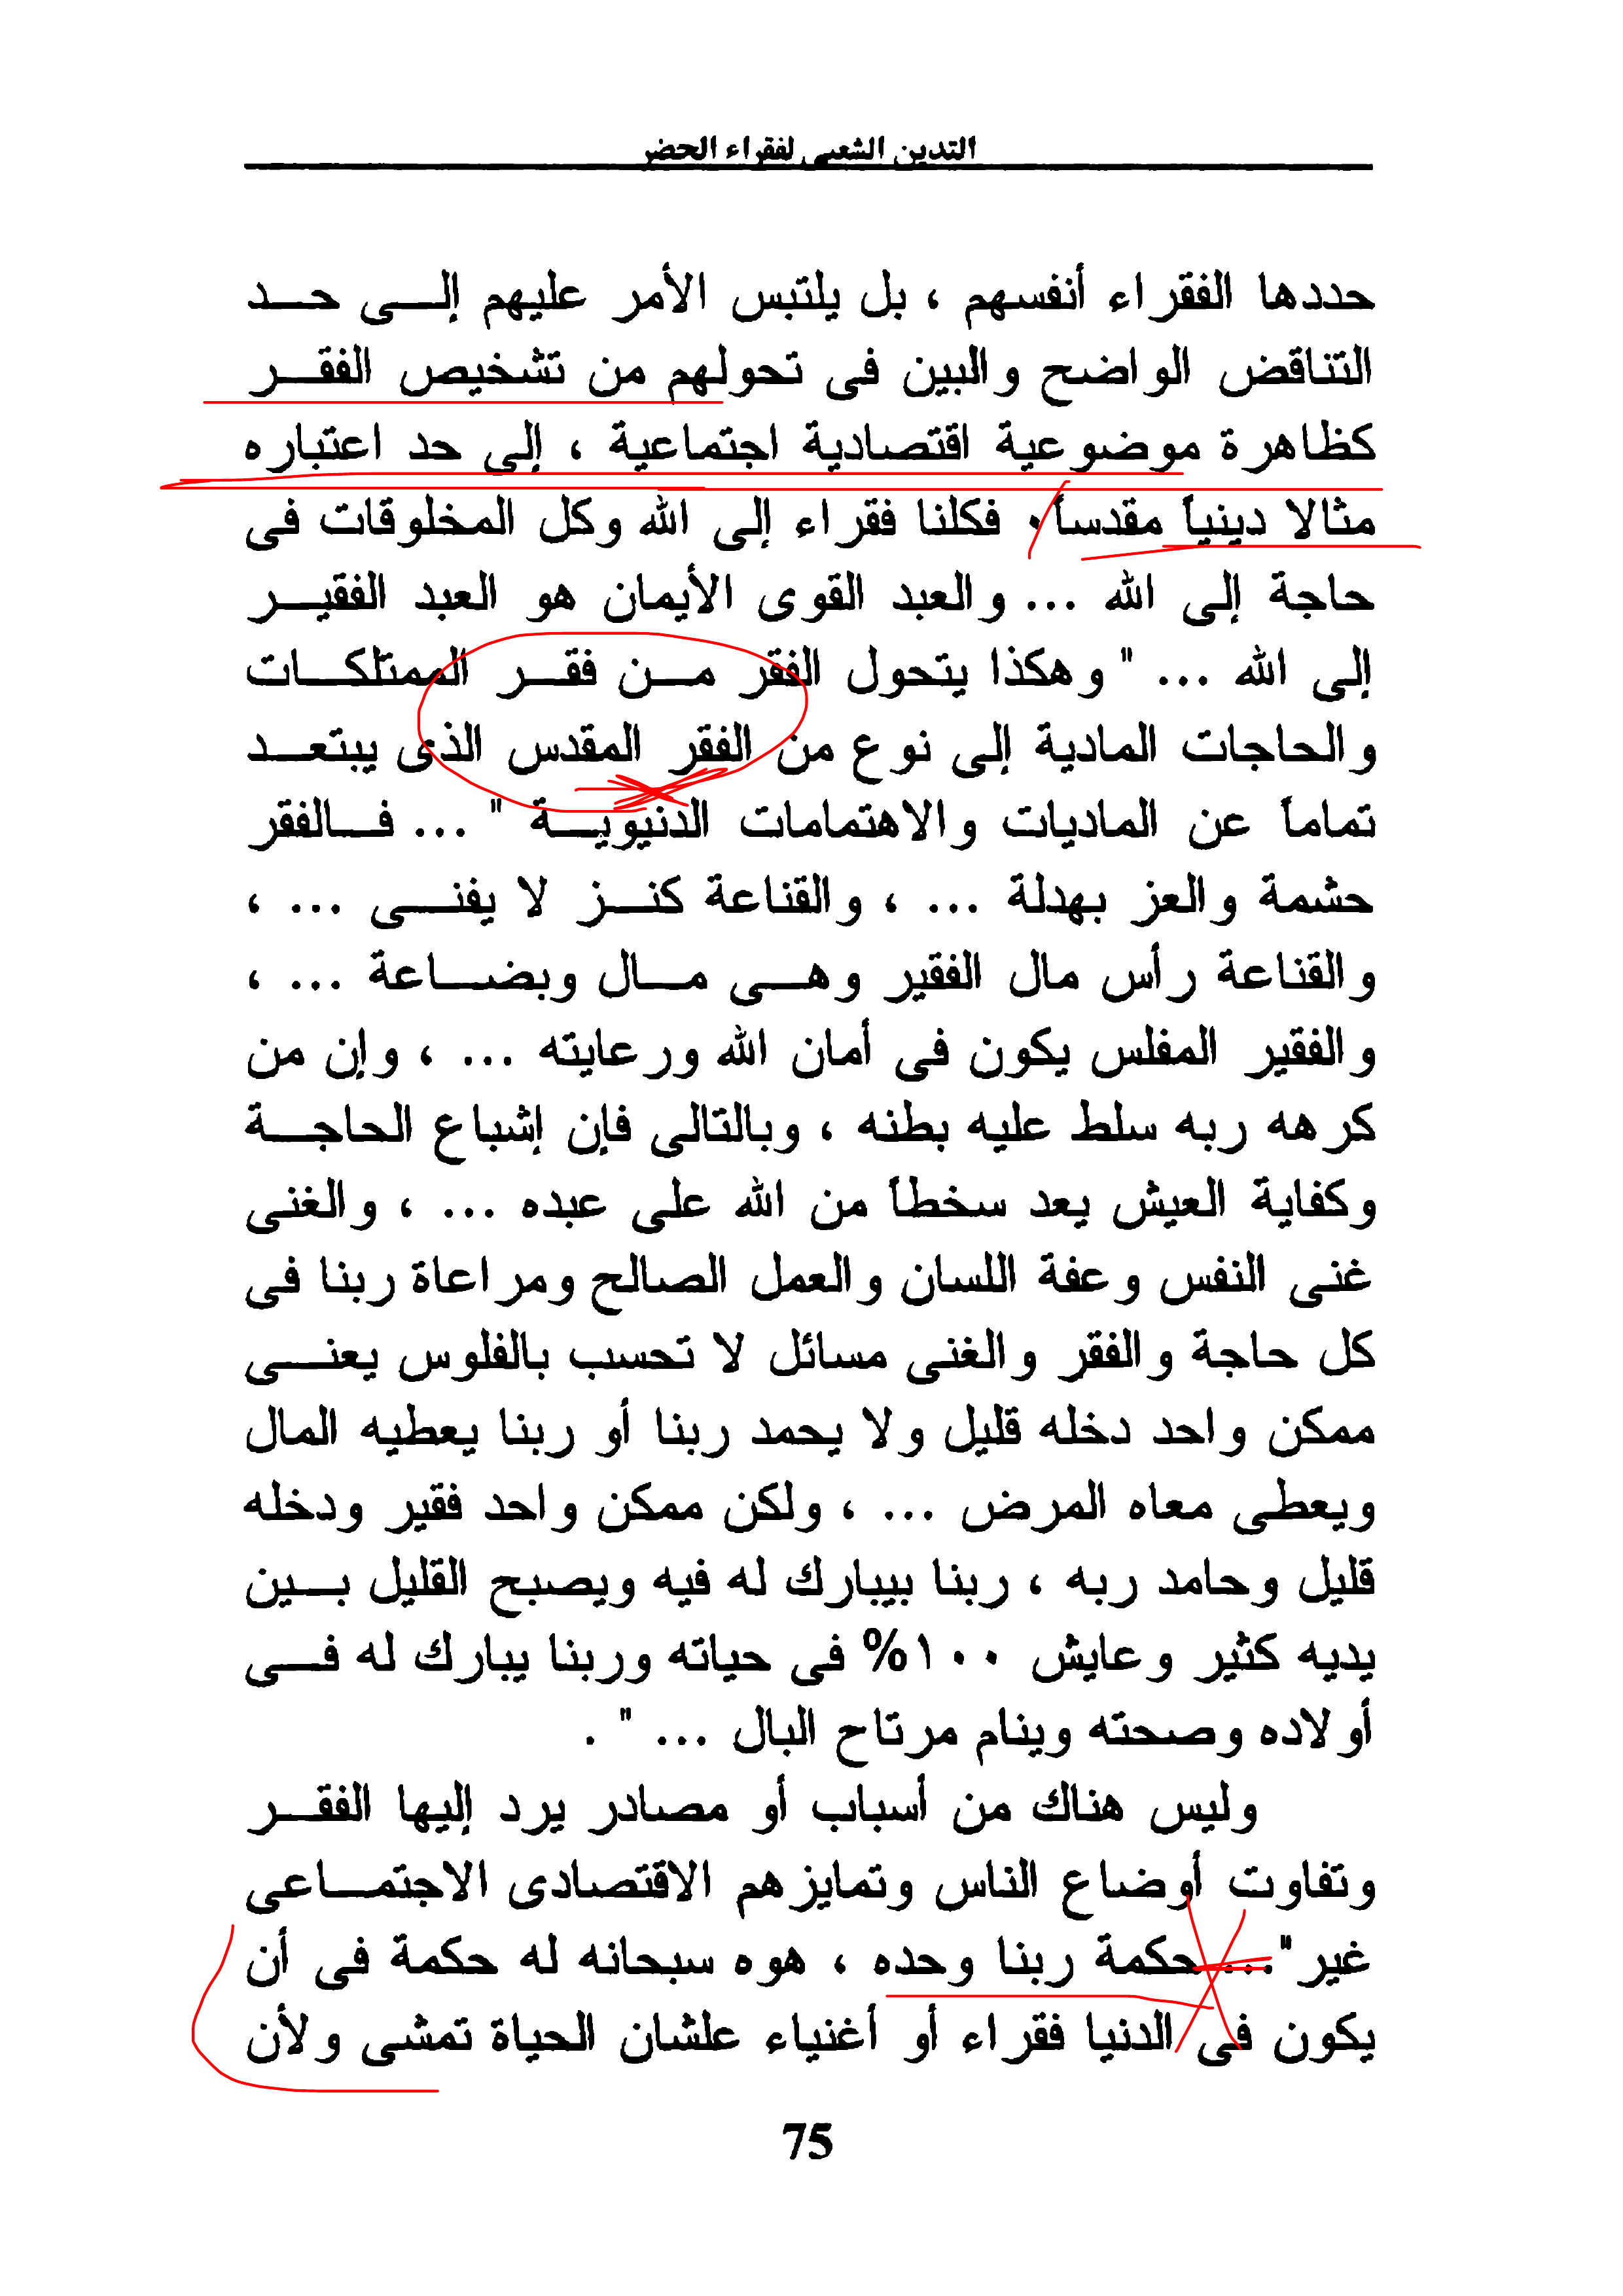 التدين الشعبى لفقراء الحضر
حددها الفقراء أنفسهم ، بل يلتبس الأمر عليهم إلى حد
التناقض الواضح والبين فى تحولهم من تشخيص الفقر
كظاهرة موضوعية اقتصادية اجتماعية ، إلى حد اعتباره
مثالا دينياً مقدساً٠ فكلنا فقراء إلى الله وكل المخلوقات فى
حاجة إلى الله ... والعبد القوى الأيمان هو العبد الفقير
إلى الله ... " وهكذا يتحول الفقر من فقر الممتلكات
والحاجات المادية إلى نوع من الفقر المقدس الذى يبتعد
تماماً عن الماديات والاهتمامات الدنيوية " ... فالفقر
حشمة والعز بهدلة ... ، والقناعة كنز لا يفنى ... ،
والقناعة رأس مال الفقير وهى مال وبضاعة ... ،
والفقير المفلس يكون فى أمان الله ورعايته ... ، وإن من
كرهه ربه سلط عليه بطنه ، وبالتالى فإن إشباع الحاجة
وكفاية العيش يعد سخطاً من الله على عبده ... ، والغنى
غنى النفس وعفة اللسان والعمل الصالح ومراعاة ربنا فى
كل حاجة والفقر والغنى مسائل لا تحسب بالفلوس يعنى
ممكن واحد دخله قليل ولا يحمد ربنا أو ربنا يعطيه المال
ويعطى معاه المرض ... ، ولكن ممكن واحد فقير ودخله
قليل وحامد ربه ، ربنا بيبارك له فيه ويصبح القليل بين
يديه كثير وعايش ١٠٠% فى حياته وربنا يبارك له فى
أولاده وصحته وينام مرتاح البال ... " .
وليس هناك من أسباب أو مصادر يرد إليها الفقر
وتفاوت أوضاع الناس وتمايزهم الاقتصادى الاجتماعى
غير "... حكمة ربنا وحده ، هوه سبحانه له حكمة فى أن
يكون فى الدنيا فقراء أو أغنياء علشان الحياة تمشى ولأن
75